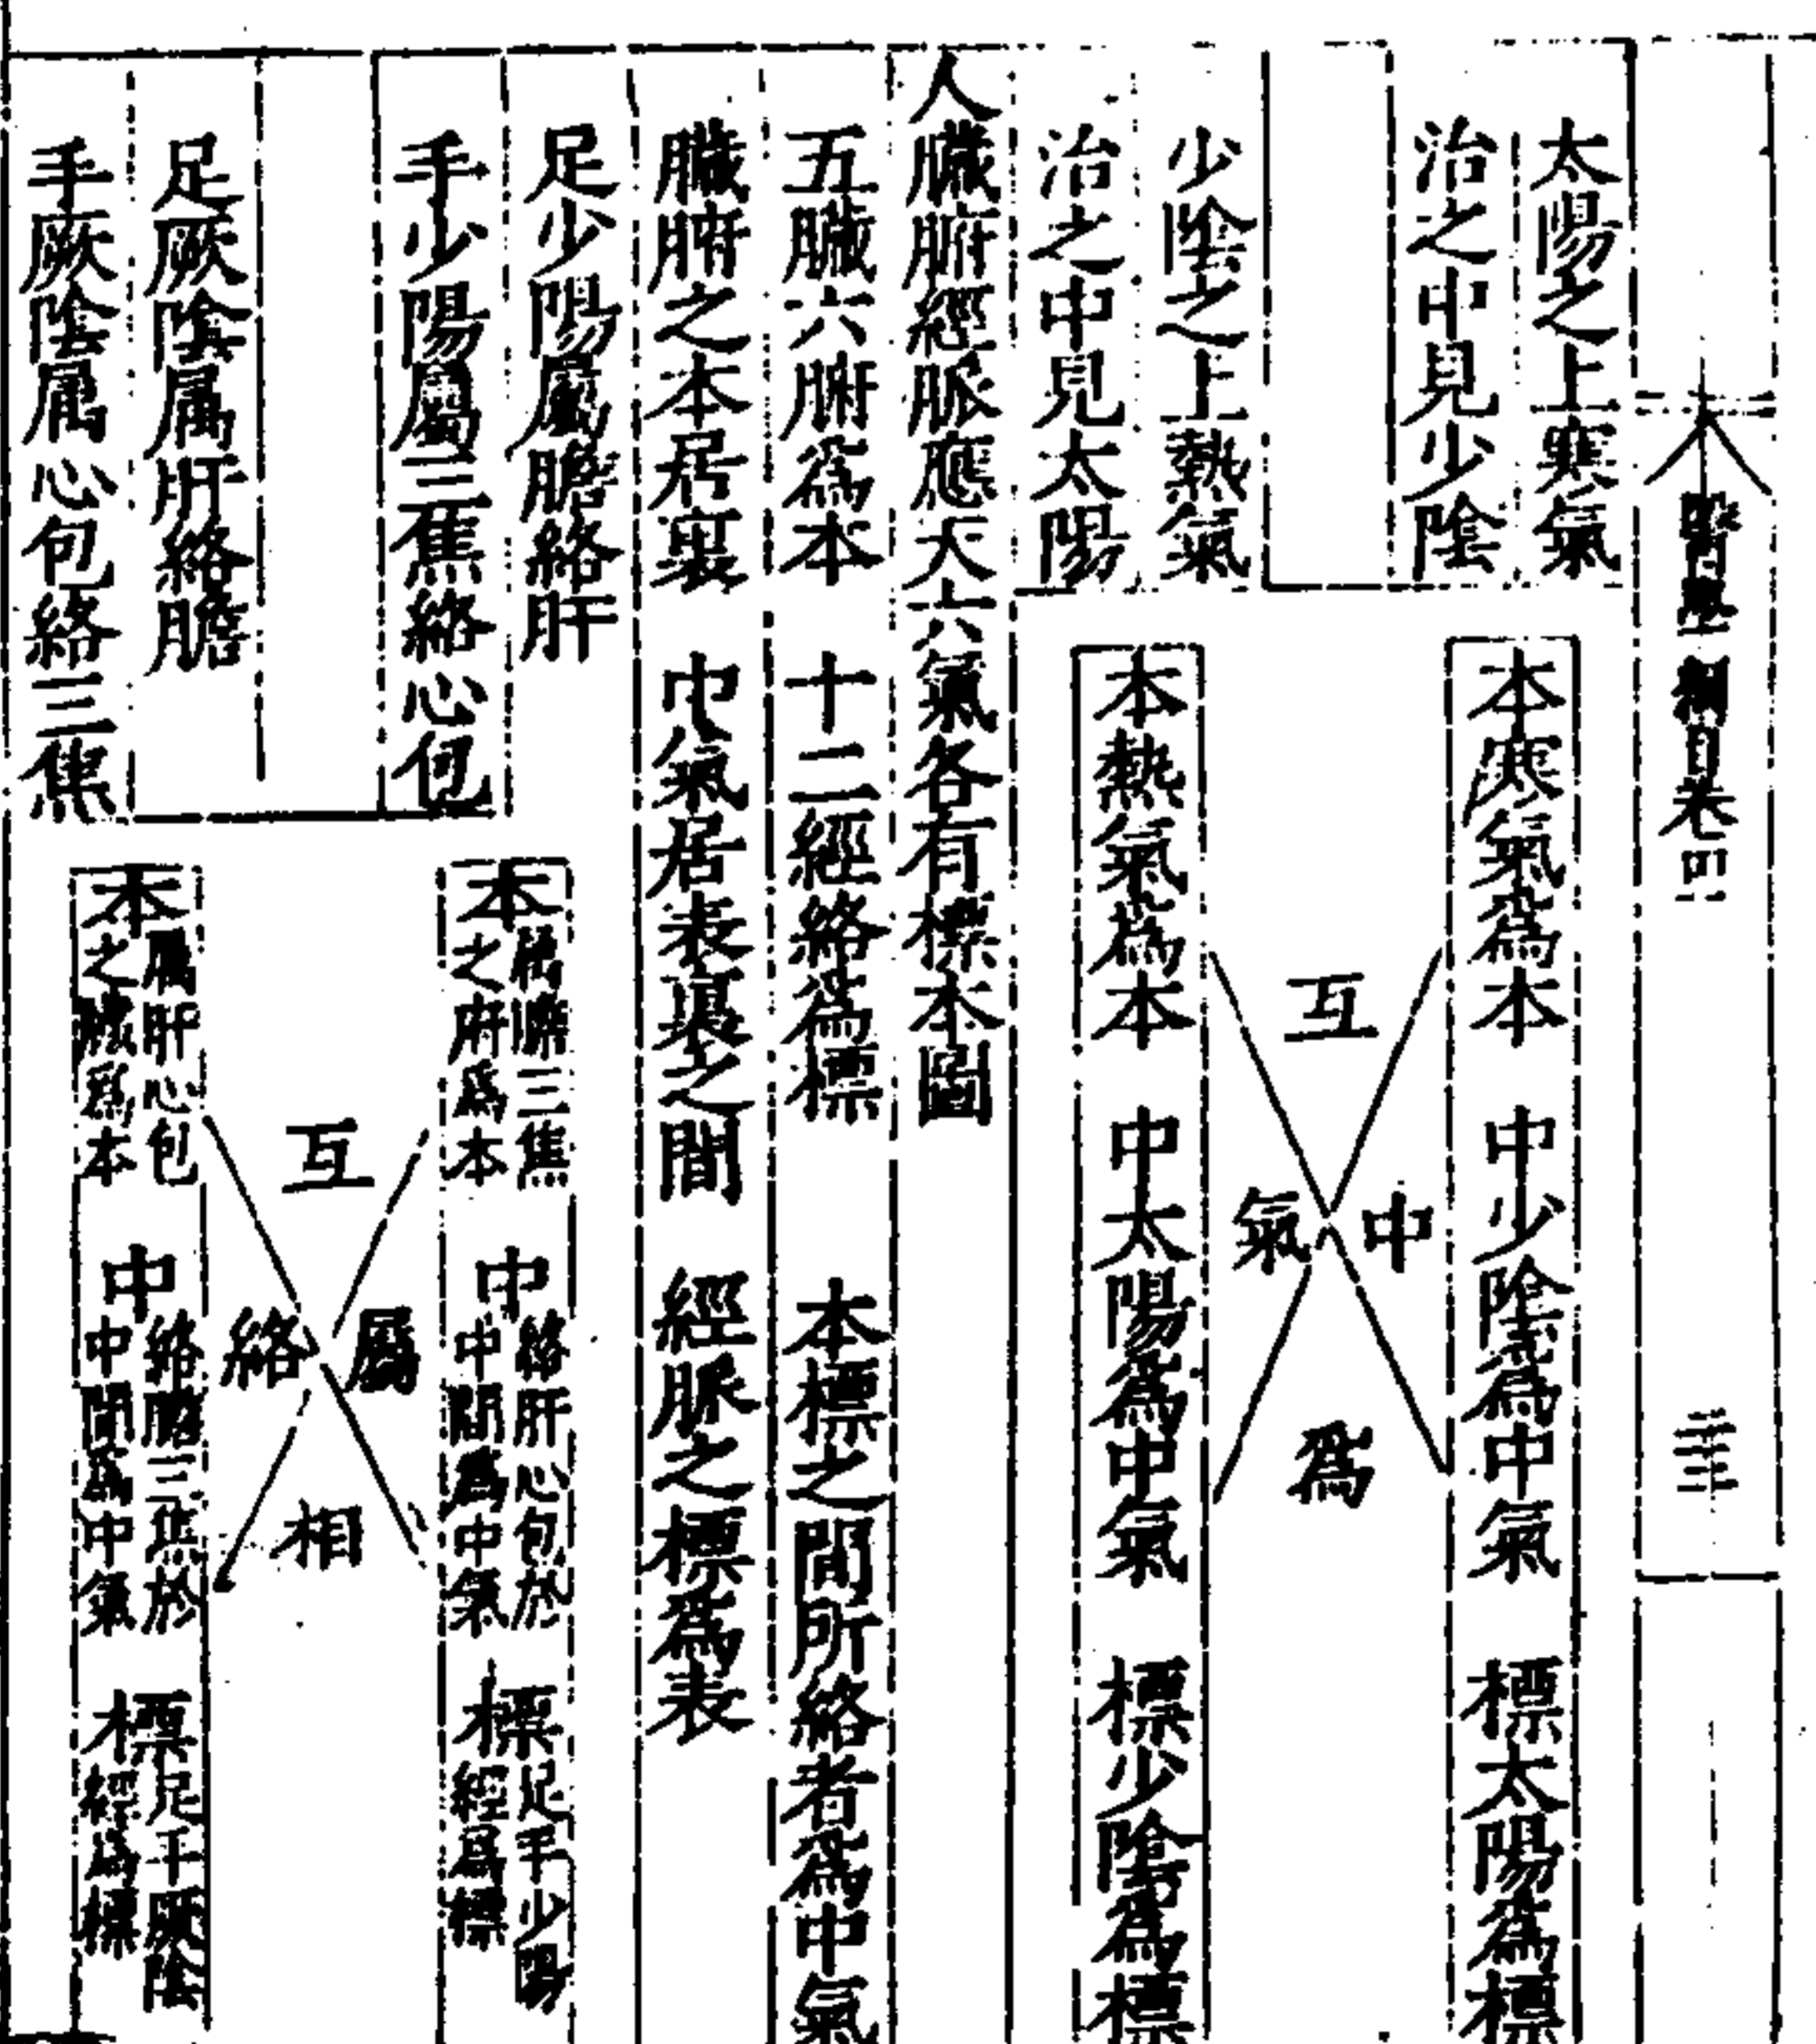 醫學綱目卷四
太陽之上寒氣
治之中見少陰
本寒氣爲本　中少陰爲中氣　標太陽爲標
互
中
氣
爲
少陰之上熱氣
治之中見太陽
本熱氣爲本　中太陽爲中氣　標少陰爲標
人臟腑經脈應天六氣各有標本圖
五臟六腑爲本　十二經絡爲標　本標之間所絡者爲中氣
臟腑之本居裏　中氣居表裏之間　經脈之標爲表
足少陽屬膽絡肝
手少陽屬三焦絡心包
本屬膽三焦
之府爲本
中絡肝心包於
中間爲中氣
標足手少陽
經爲標
互
屬
絡
相
足厥陰属肝絡膽
手厥陰属心包絡三焦
本屬肝心包
之臟爲本
中絡膽三焦於
中間爲中氣
標足手厥陰
經爲標